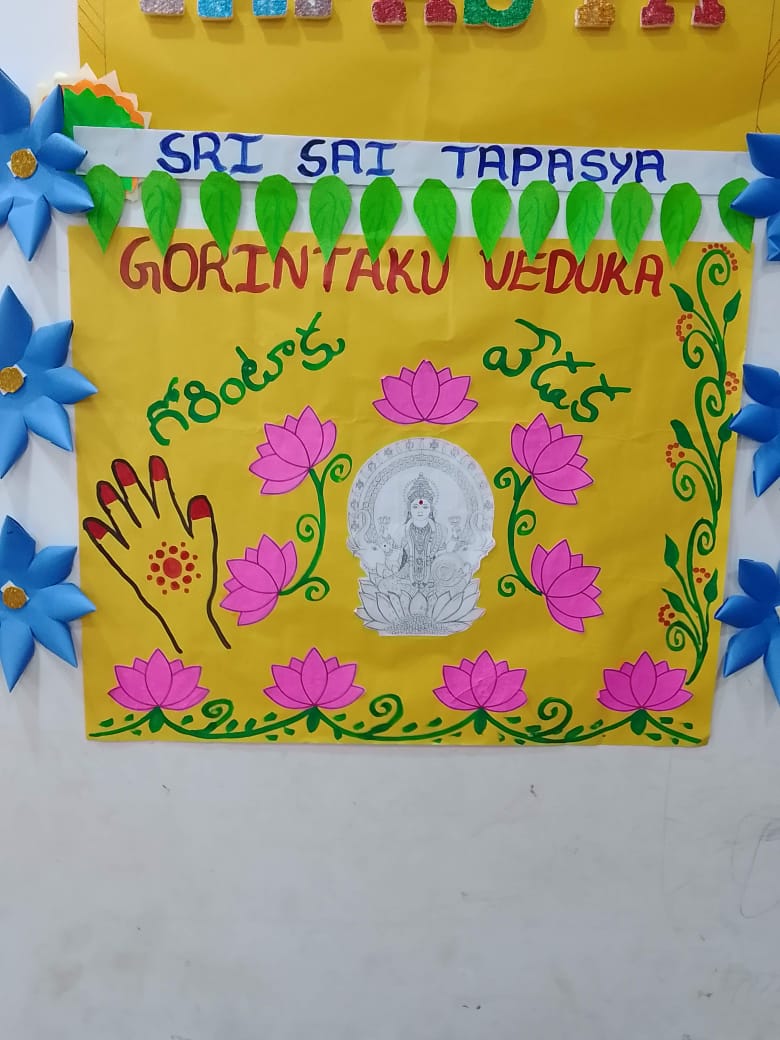 SRI SAI TAPASYA
GORINTAKU VEDUKA
గోరింటాకు వేడుక